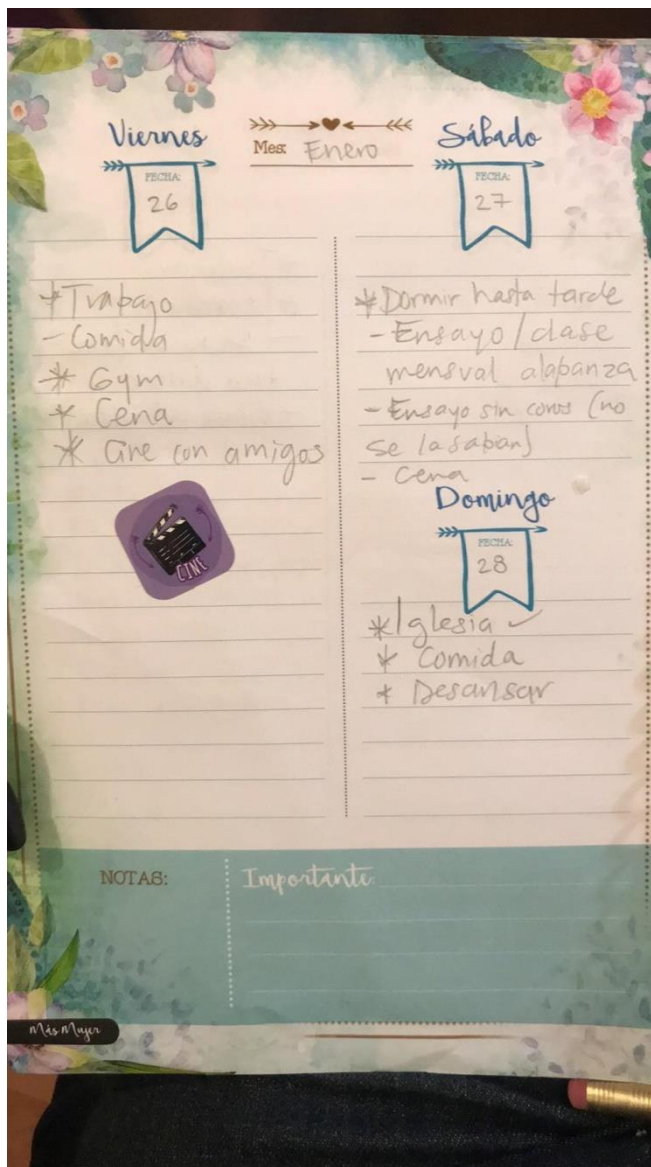 Viernes
Mes: Enero
FECHA:
26
* Trabajo
- Comida
* Gym
* Cena
* Cine con amigos
CINE
Sábado
FECHA:
27
* Dormir hasta tarde
- Ensayo / clase
mensual alabanza
- Ensayo sin coros (no
se la sabian)
- Cena
Domingo
FECHA:
28
* Iglesia ✓
* Comida
* Descansar
NOTAS:
Importante:
Más Mujer